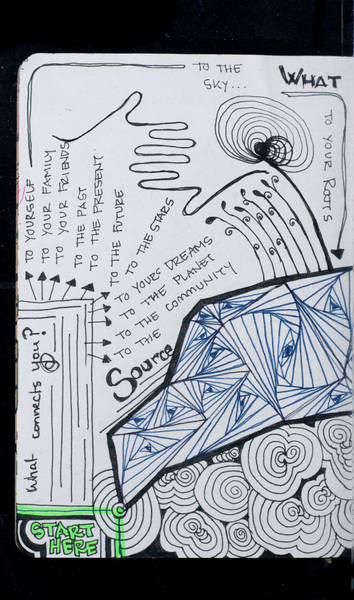 START
HERE
What connects you?
TO YOURSELF
TO YOUR FAMILY
TO YOUR FRIENDS
TO THE PAST
TO THE PRESENT
TO THE FUTURE
TO THE STARS
TO YOURS DREAMS
TO THE PLANET
TO THE COMMUNITY
TO THE
Source
TO THE
SKY...
WHAT
TO YOUR ROOTS